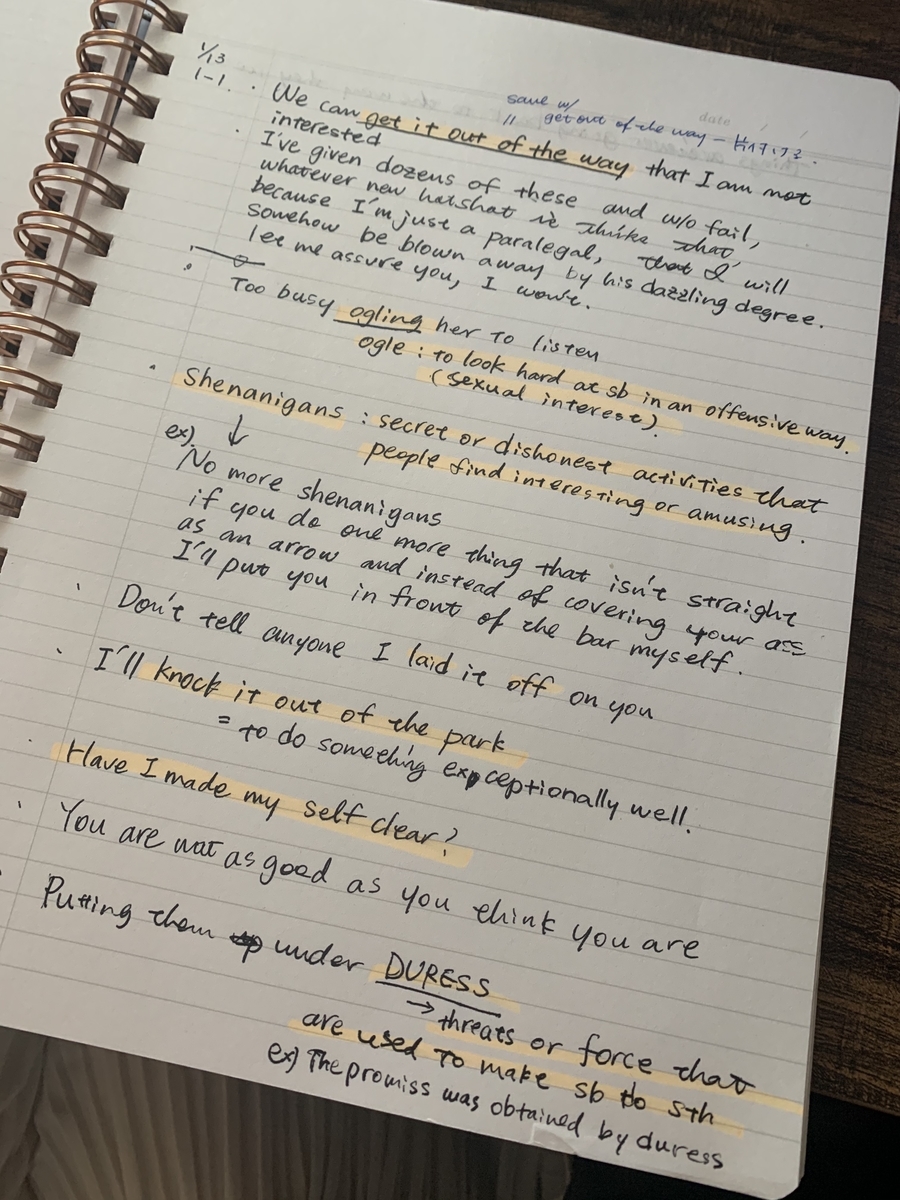 1/13
1-1.
save w/
" get out of the way -
date
We can get it out of the way that I am not
interested
I've given dozens of these and w/o fail,
whatever new hotshot is thinks that
because I'm just a paralegal, that I will
somehow be blown away by his dazzling degree.
let me assure you, I won't.
Too busy ogling her to listen
ogle : to look hard at sb in an offensive way.
(sexual interest).
Shenanigans : secret or dishonest activities that
people find interesting or amusing.
ex)
No more shenanigans
if you do one more thing that isn't straight
as an arrow and instead of covering your ass
I'll put you in front of the bar myself.
Don't tell anyone I laid it off on you
I'll knock it out of the park
= to do something expceptionally well.
Have I made my self clear?
You are not as good as you think you are
Putting them under DURESS
→ threats or force that
are used to make sb do sth
ex) The promiss was obtained by duress